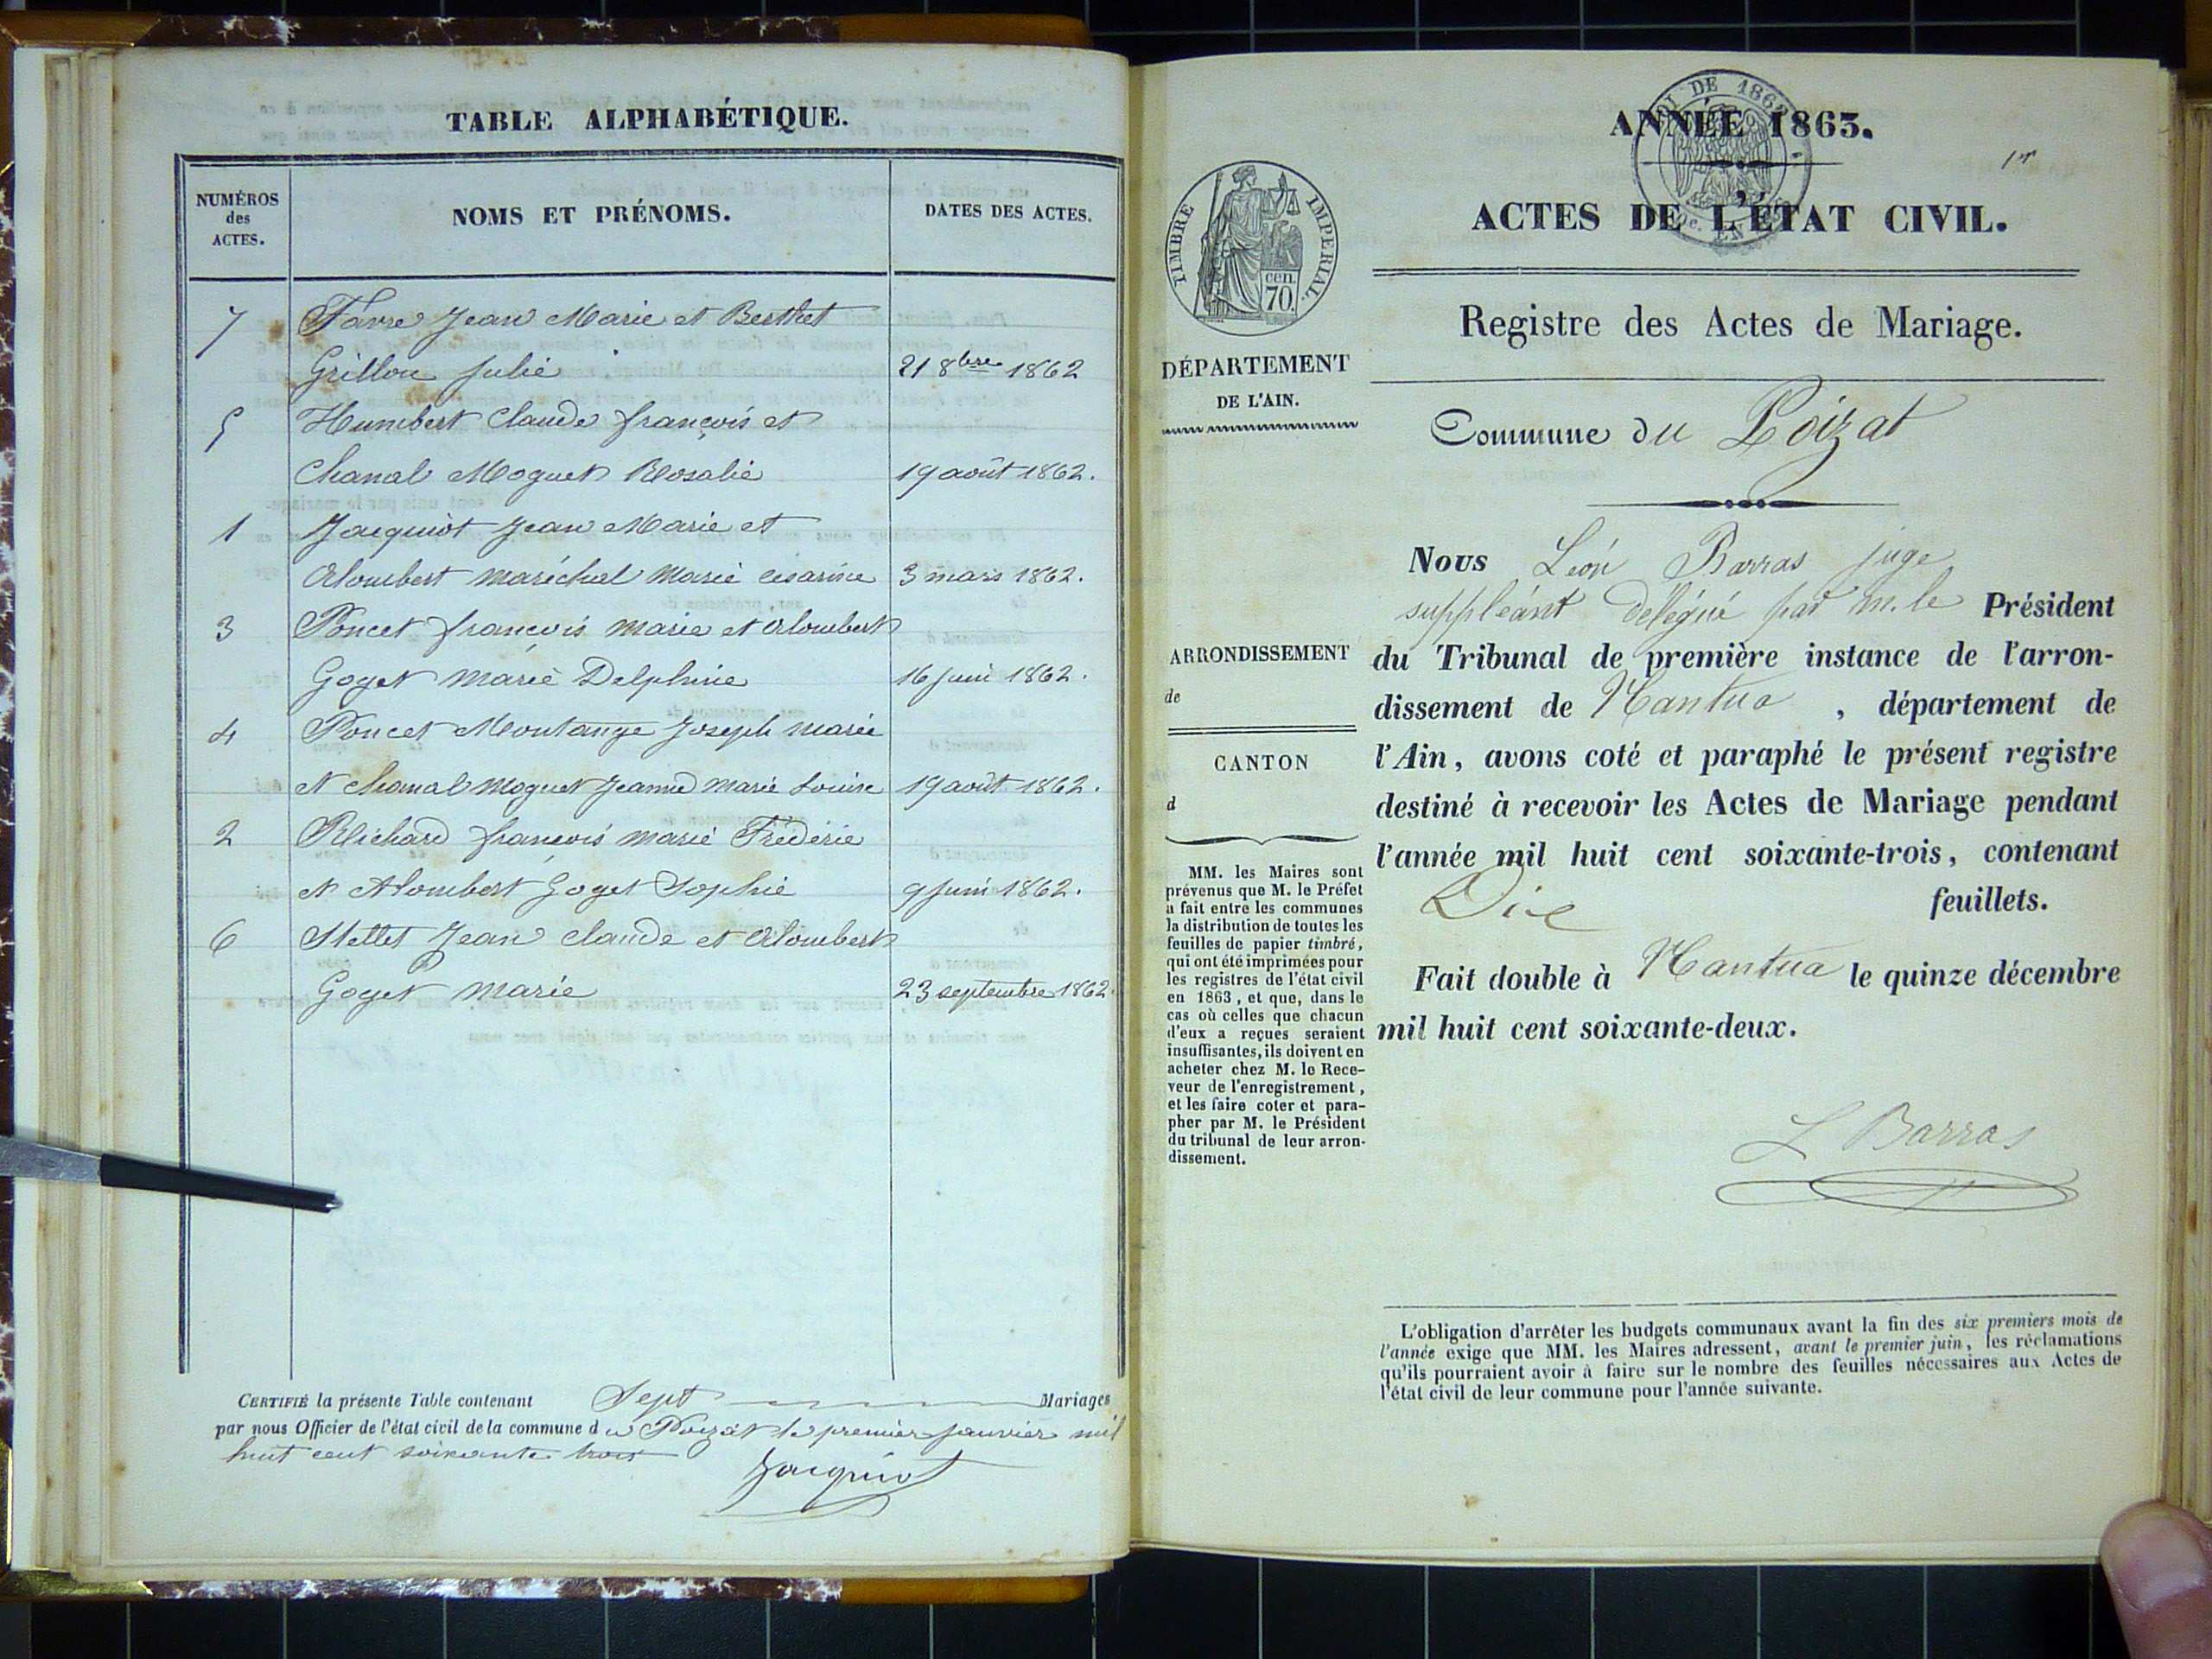 TABLE ALPHABÉTIQUE.
NUMÉROS
des
ACTES.
NOMS ET PRÉNOMS.
DATES DES ACTES.
7 Favre Jean Marie et Berthet
Grillon Julie 21 8bre 1862
5 Humbert Claude françois et
Chanal Moguet Rosalie 19 août 1862.
1 Jacquiot Jean Marie et
Alombert maréchal Marie césarine 3 mars 1862.
3 Poncet françois marie et alombert
Goget marie Delphine 16 juin 1862.
4 Poncet Montange Joseph marie
et chanal Moguet Jeanne marie Louise 19 août 1862.
2 Richard françois marie Frédéric
et Alombert Goget Sophie 9 juin 1862.
6 Mettet Jean claude et alombert
Goget marie 23 septembre 1862.
CERTIFIÉ la présente Table contenant Sept Mariages
par nous Officier de l'état civil de la commune du Poizat le premier janvier mil
huit cent soixante trois
Jacquiot
ANNÉE 1863.
1er
TIMBRE IMPÉRIAL.
cen.
70.
DE 1862
EN
ACTES DE L'ÉTAT CIVIL.
Registre des Actes de Mariage.
DÉPARTEMENT
DE L'AIN.
Commune du Poizat
Nous Léon Barras juge
suppléant délégué par m. le Président
du Tribunal de première instance de l'arron-
dissement de Nantua , département de
l'Ain, avons coté et paraphé le présent registre
destiné à recevoir les Actes de Mariage pendant
l'année mil huit cent soixante-trois, contenant
Dix feuillets.
Fait double à Nantua le quinze décembre
mil huit cent soixante-deux.
L Barras
ARRONDISSEMENT
de
CANTON
d
MM. les Maires sont
prévenus que M. le Préfet
a fait entre les communes
la distribution de toutes les
feuilles de papier timbré,
qui ont été imprimées pour
les registres de l'état civil
en 1863, et que, dans le
cas où celles que chacun
d'eux a reçues seraient
insuffisantes, ils doivent en
acheter chez M. le Rece-
veur de l'enregistrement,
et les faire coter et para-
pher par M. le Président
du tribunal de leur arron-
dissement.
L'obligation d'arrêter les budgets communaux avant la fin des six premiers mois de
l'année exige que MM. les Maires adressent, avant le premier juin, les réclamations
qu'ils pourraient avoir à faire sur le nombre des feuilles nécessaires aux Actes de
l'état civil de leur commune pour l'année suivante.